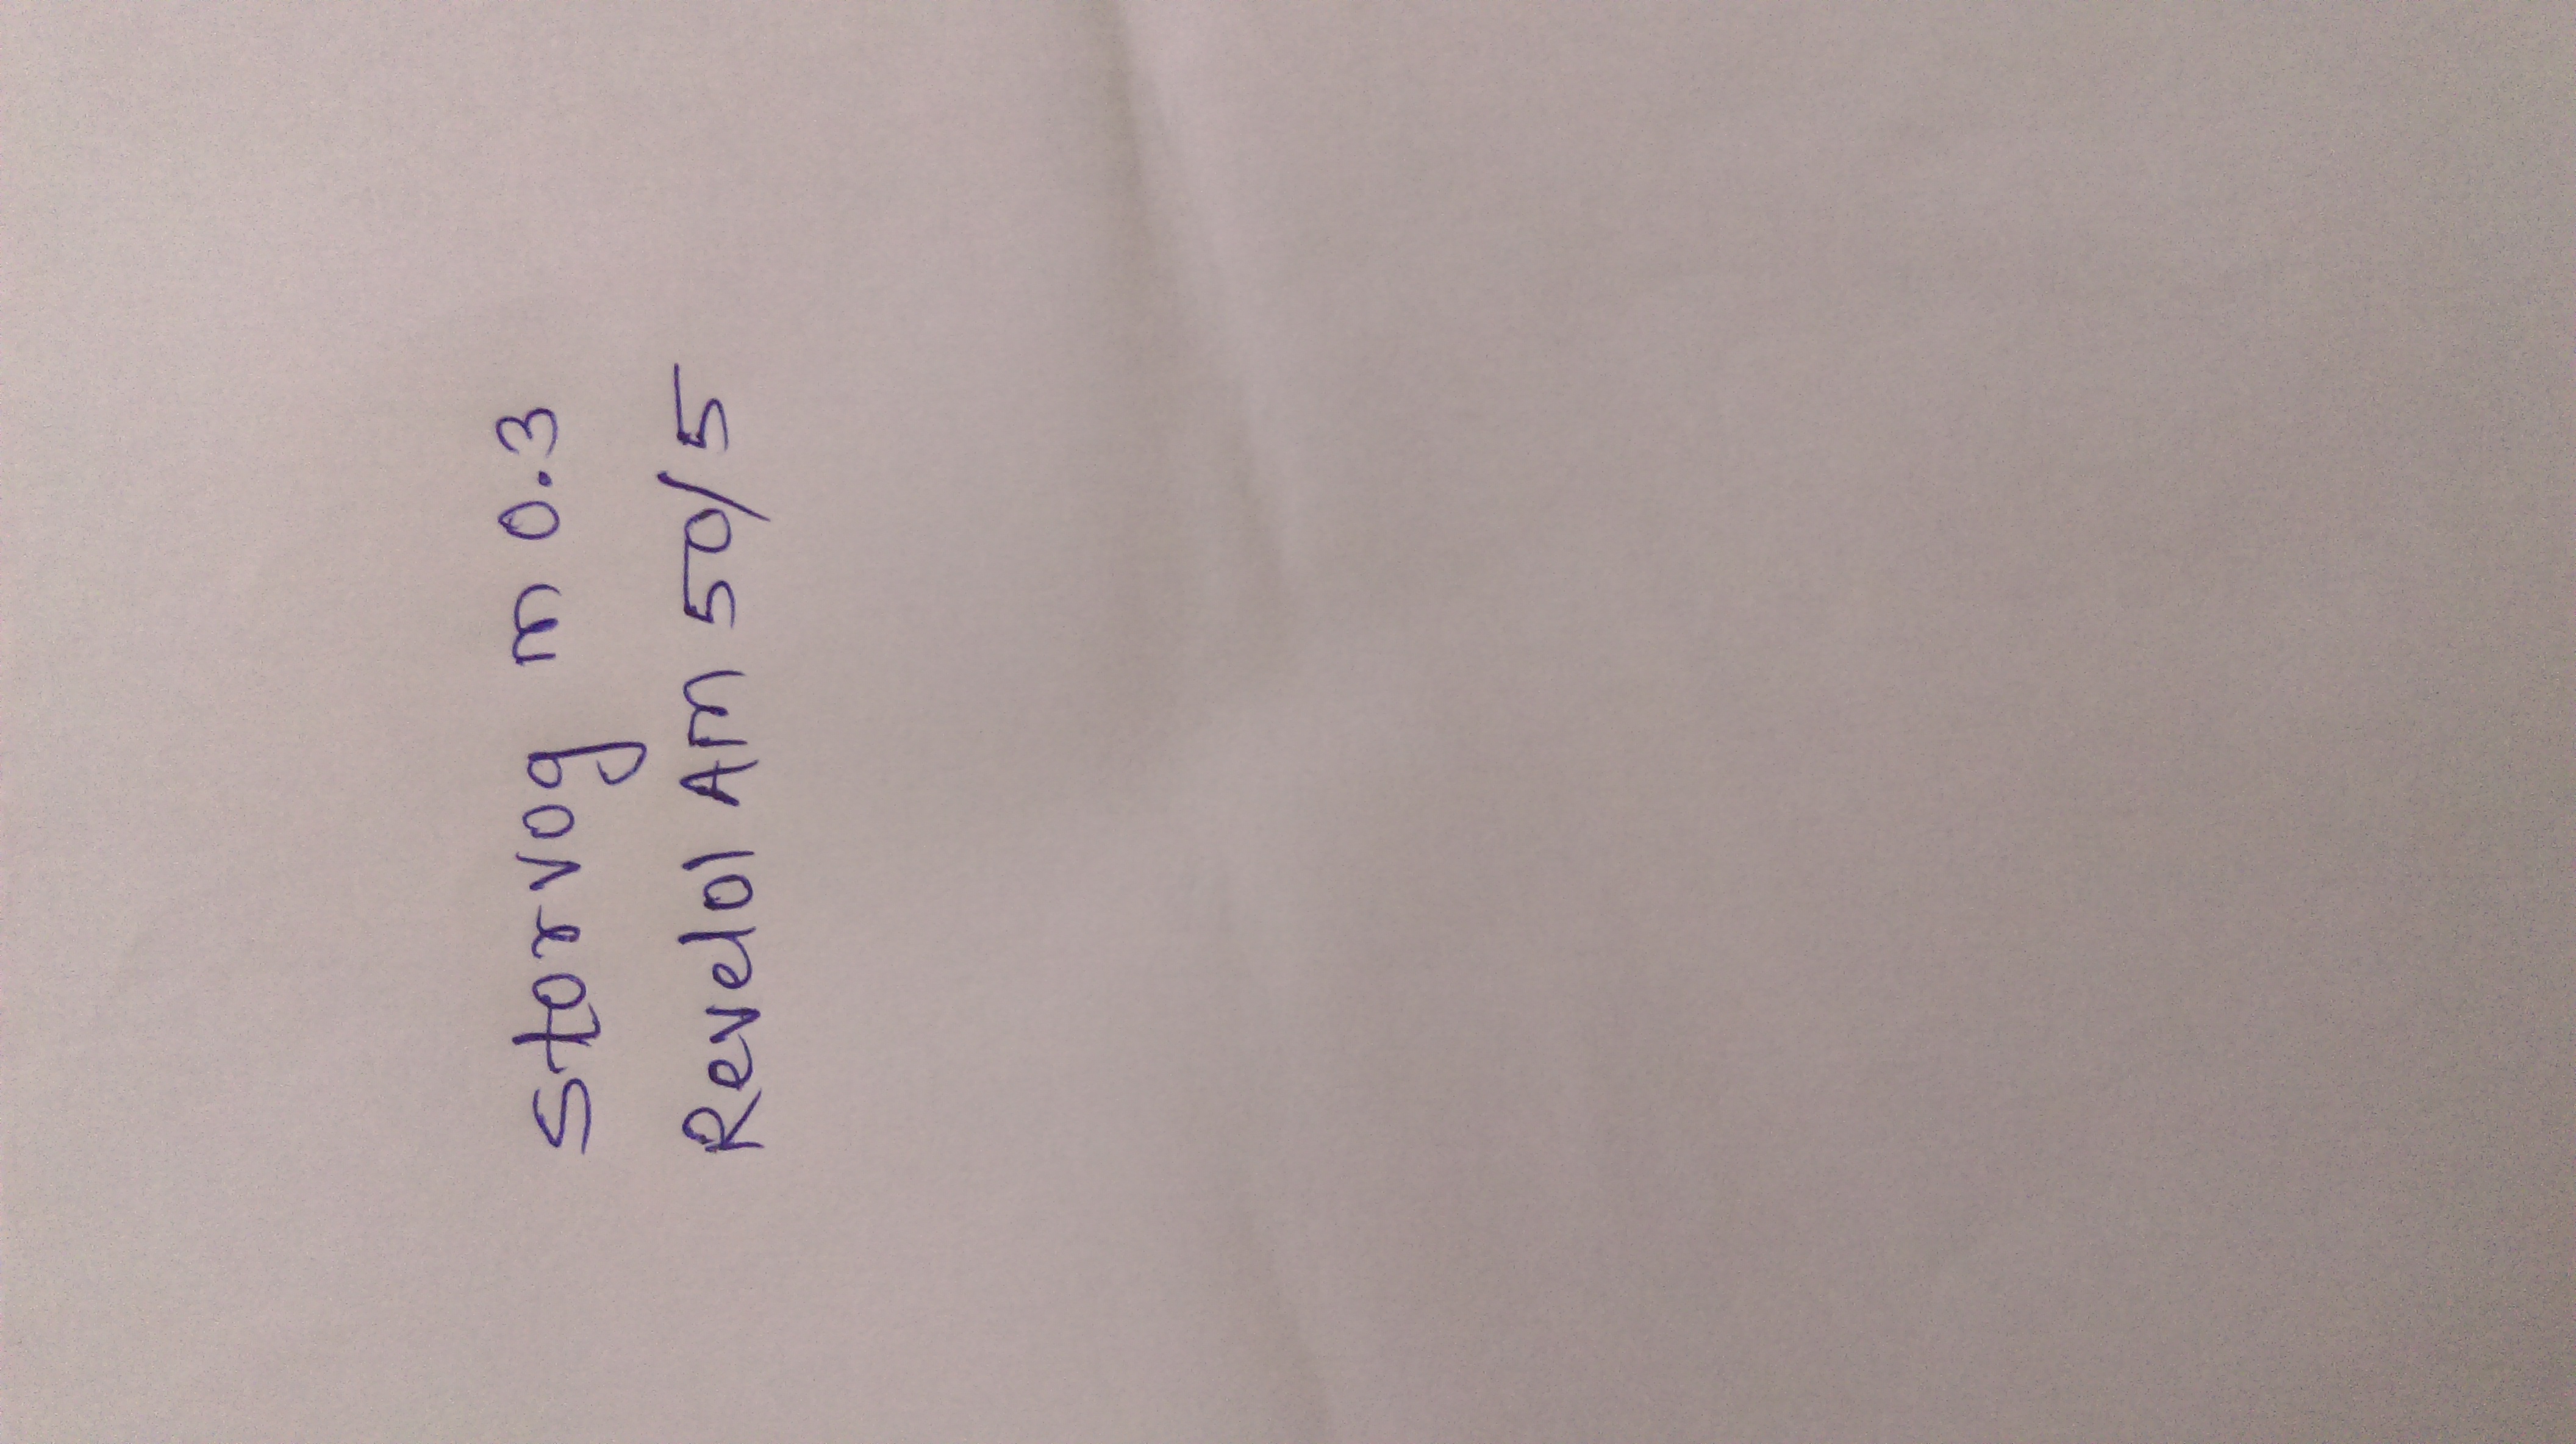 Storvog m 0.3
Revelol Am 50/5